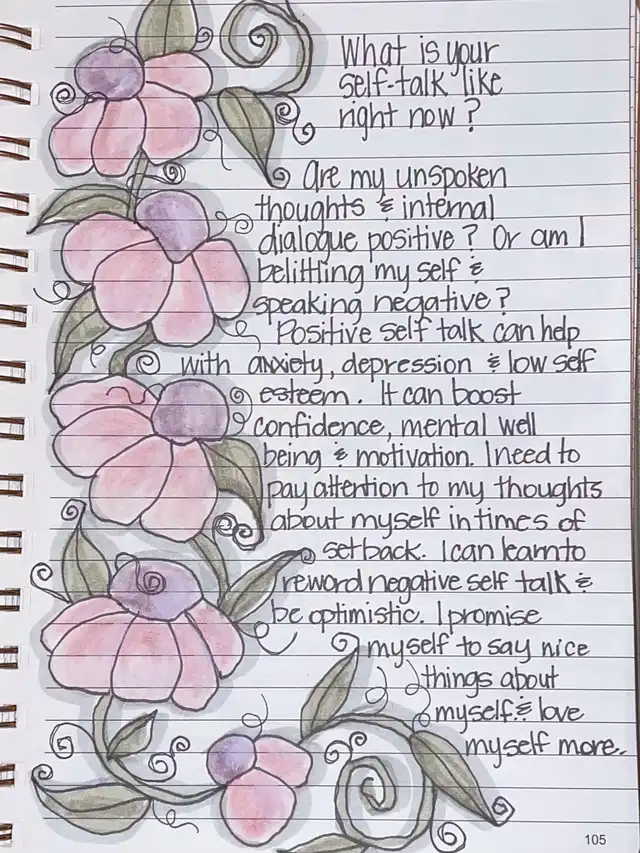 What is your
self-talk like
right now?
Are my unspoken
thoughts & internal
dialogue positive? Or am I
belittling my self &
speaking negative?
Positive self talk can help
with anxiety, depression & low self
esteem. It can boost
confidence, mental well
being & motivation. I need to
pay attention to my thoughts
about myself in times of
setback. I can learn to
reword negative self talk &
be optimistic. I promise
myself to say nice
things about
myself & love
myself more.
105